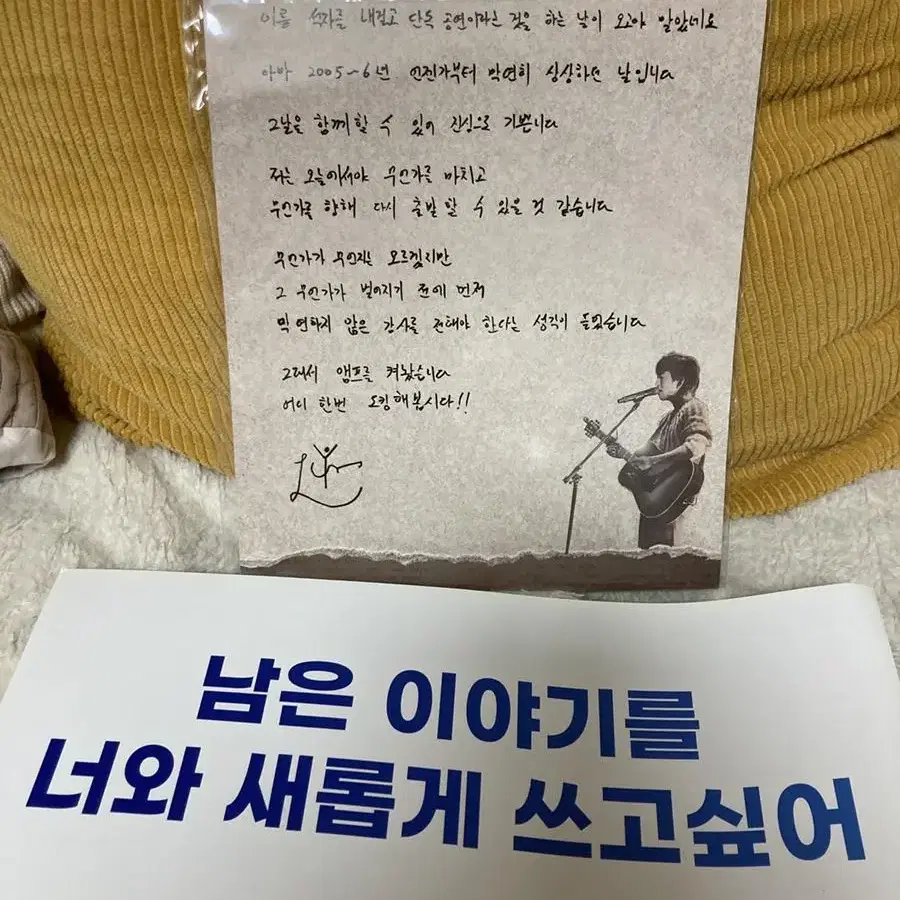 이름 석자를 내걸고 단독 공연이라는 것을 하는 날이 오고야 말았네요
아마 2005~6년 언젠가부터 막연히 상상하던 날입니다
그날을 함께할 수 있어 진심으로 기쁩니다
저는 오늘에서야 무언가를 마치고
무언가를 향해 다시 출발 할 수 있을 것 같습니다
무언가가 무언지는 모르겠지만
그 무언가가 벌어지기 전에 먼저
막연하지 않은 감사를 전해야 한다는 생각이 들었습니다
그래서 앰프를 켜놨습니다
어디 한번 도킹해봅시다!!
남은 이야기를
너와 새롭게 쓰고싶어